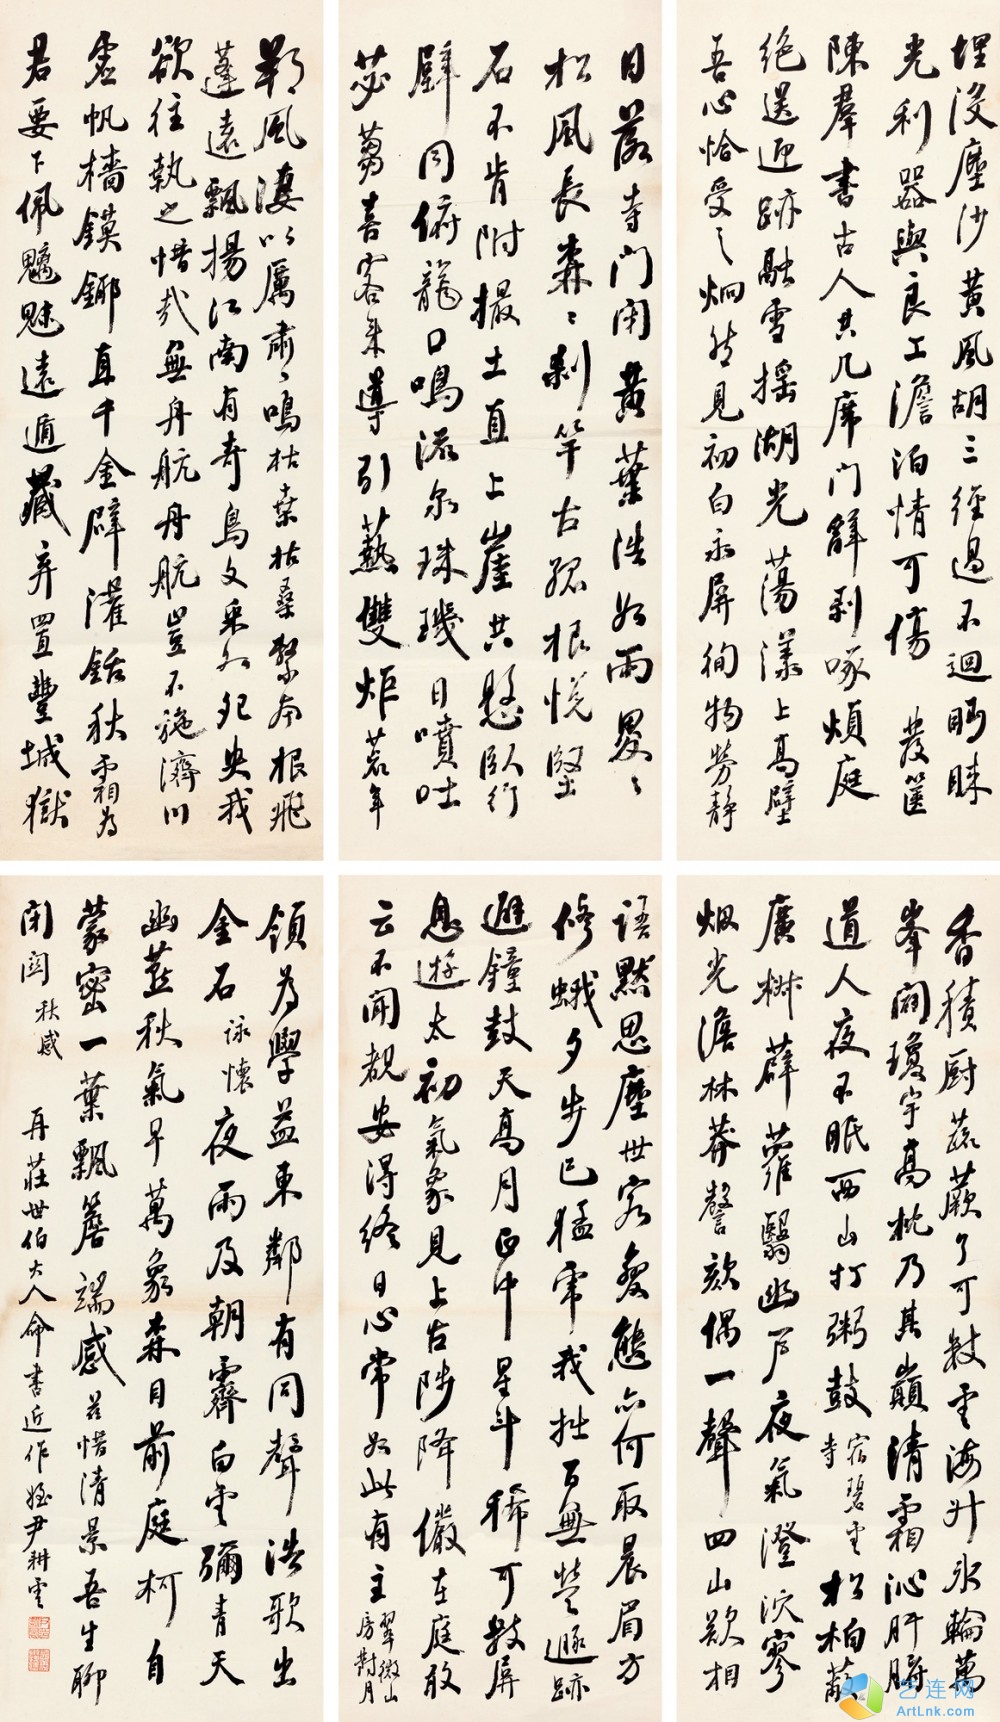 埋没塵沙黄風胡三經過不迴眄睞
光利器與良工澹泊情可傷 發篋
陳羣書古人共几席門辭剥啄煩庭
絶送迎跡融雪摇湖光蕩漾上高壁
吾心恰受之炯然見初白永屏徇物勞静
日落寺門閉黄葉浩如雨畟々
松風長森々刹竿古孤根恍墜
石不肯附撮土直上崖共懸卧行
壁同俯龍口鳴流泉珠璣日噴吐
苾蒭喜客来導引爇雙炬若年
風淒以厲肅々鳴枯葉枯桑繫本根飛
蓬遠飄揚江南有奇鳥文采如我
欲往執之惜哉無舟航舟航豈不施濟川
虚帆檣鏌鋣直千金濯銛秋霜為
君要下佩魑魅遠遁藏弃置豐城獄
香積厨蔬蕨了可數雲海升氷輪萬
峯闢瓊宇高枕乃其巔清霜沁肝膈
道人夜不眠西山打粥鼓 宿碧雲寺 松柏蔽
廣薜蘿翳幽户夜氣澄泬寥
烟光澹林莽謦欬偶一聲四山欻相
語默思塵世客變態亦何取晨眉方
修蛾夕步已猛虎我拙百無營遯跡
避鐘鼓天高月正中星斗稀可數屏
息遊太初氣象見上古陟降儼在庭敢
云不聞覩安得終日心常如此有主 翠微山房對月
領為學益東鄰有同聲浩歌出
金石 詠懷 夜雨及朝霽白雲彌青天
幽蓝秋氣早萬象森目前庭柯自
蒙密一葉飄簷端感茲惜清景吾生聊
閉關 秋感 再莊世伯大人命書近作 姪尹耕雲
艺连网
ArtLnk.com